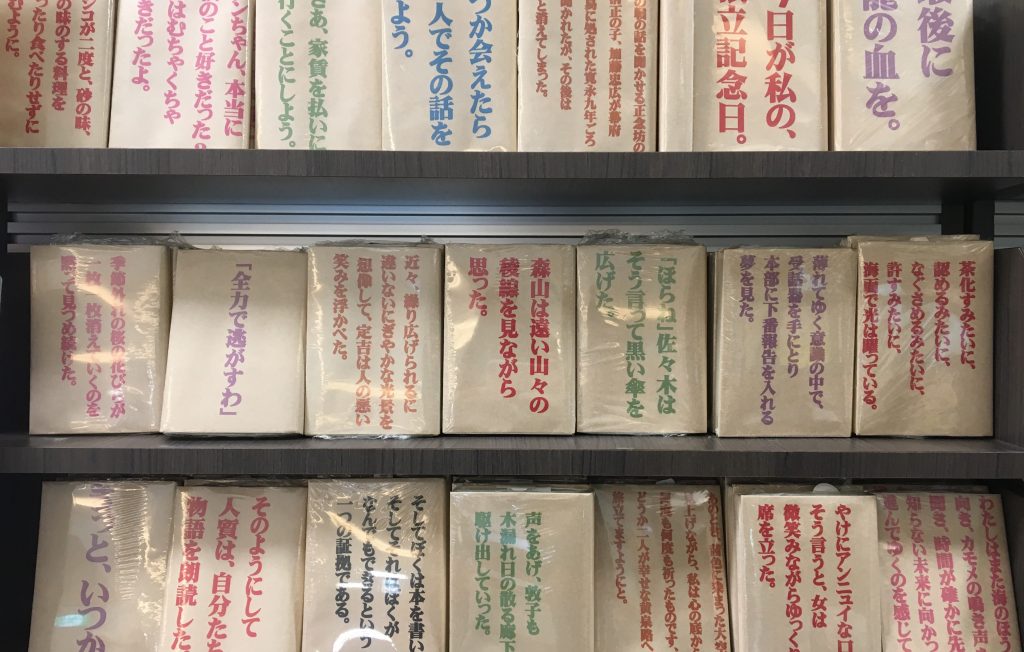 の味のする料理を
たり食べたりせずに
ように。
ンちゃん、本当に
のこと好きだった
はむちゃくちゃ
きだったよ。
さあ、家賃を払いに
行くことにしよう。
つか会えたら
人でその話を
よう。
の話を聞かせる正念坊の
清正の子、加藤忠広が幕府
された寛永九年ごろ
聞かれたが、その後は
と消えてしまった。
今日が私の、
立記念日。
最後に
龍の血を。
季節外れの桜の花びらが
一枚一枚消えていくのを
黙って見つめ続けた。
「全力で逃がすわ」
近々、繰り広げられるに
違いないにぎやかな光景を
想像して、定吉は人の悪い
笑みを浮かべた。
森山は遠い山々の
稜線を見ながら
思った。
「ほらね」佐々木は
そう言って黒い傘を
広げた。
薄れてゆく意識の中で、
受話器を手にとり
本部に下番報告を入れる
夢を見た。
茶化すみたいに、
認めるみたいに、
なぐさめるみたいに、
許すみたいに、
海面で光は躍っている。
っと、いつか
そのようにして
人質は、自分たち
物語を朗読した
そしてぼくは本を書い
そしてこれはぼくが
なんでもできるという
一つの証拠である。
声をあげ、敦子も
木漏れ日の散る廊下
駆け出していった。
上げながら、私は心の底から
何度も何度も祈ったものです。
どうか二人が幸せな黄泉路へ
旅立てますようにと。
やけにアンニュイな口
そう言うと、女は
微笑みながらゆっく
席を立った。
わたしはまた海のほう
向き、カモメの鳴き声
聞き、時間が確かに先
知らない未来に向かっ
進んでゆくのを感じて